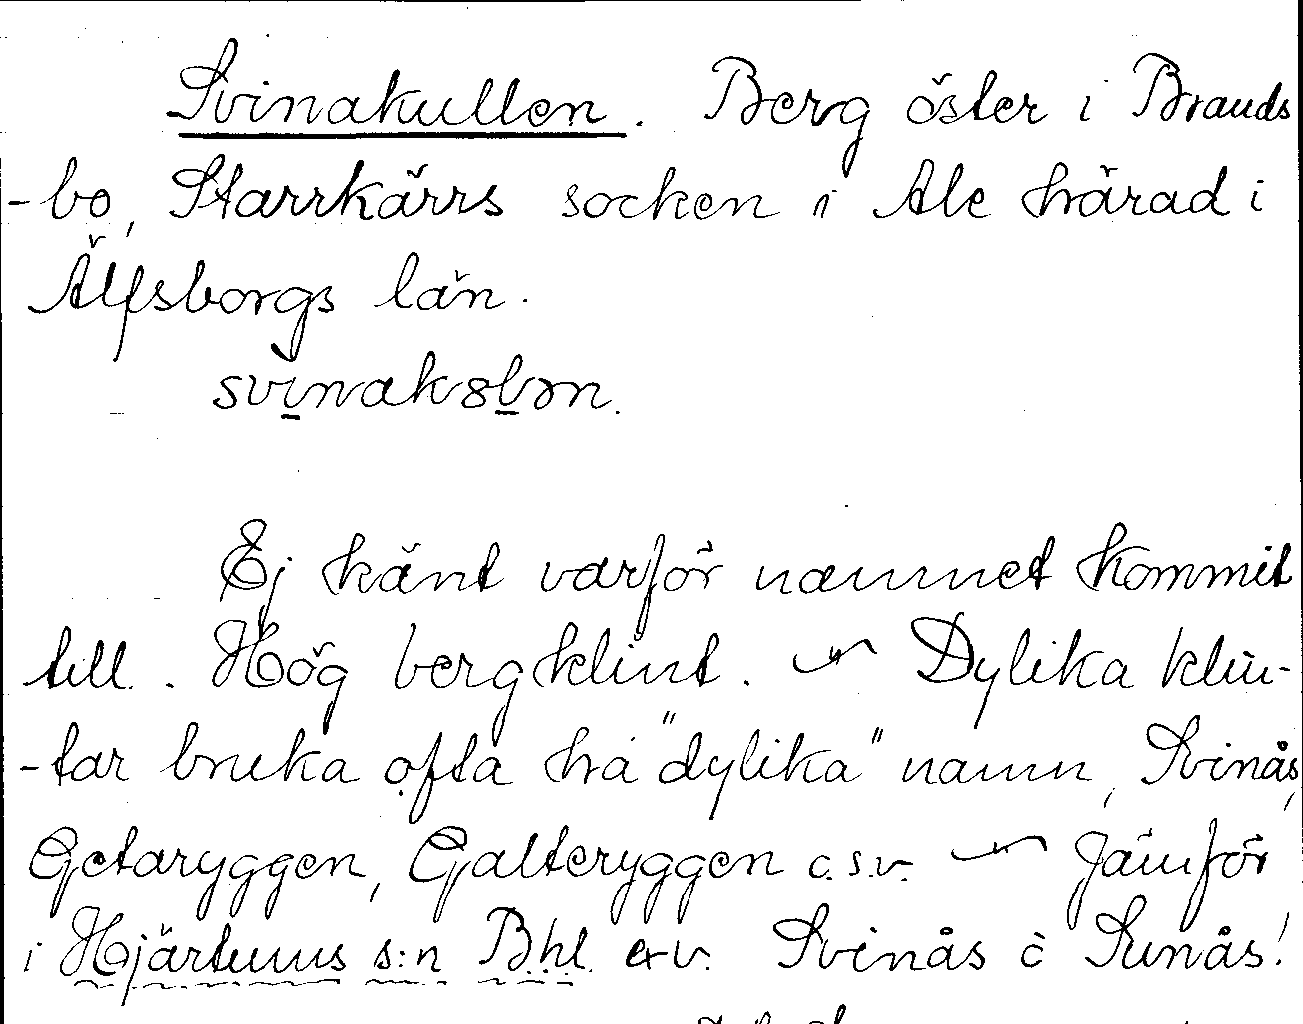 Svinakullen. Berg öster i Brands
-bo, Starrkärrs socken i Ale härad i
Älfsborgs län.
Ej känt varför namnet kommit
till. Hög bergklint. ~ Dylika klin-
-tar bruka ofta ha "dylika" namn, Svinås,
Getaryggen, Galteryggen o.s.v. ~ Jämför
i Hjärtums s:n Bhl. ex.v. Svinås o Sunås!